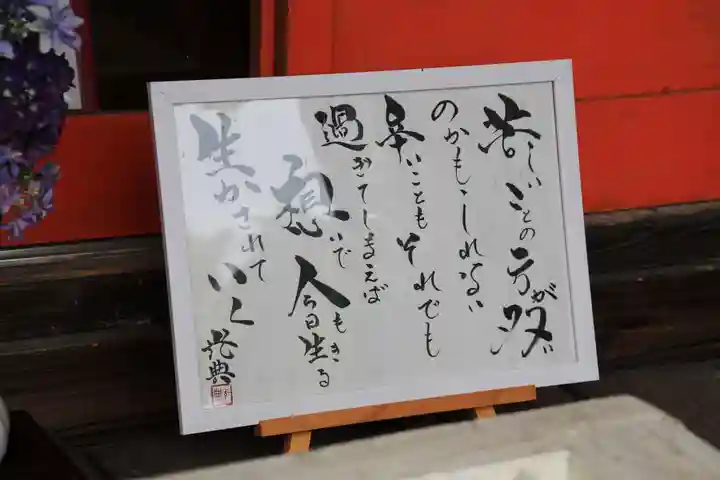 苦しいことの方が多い
のかもしれない
辛いことも それでも
過ぎてしまえば
想いで 今日も生きる
生かされていく